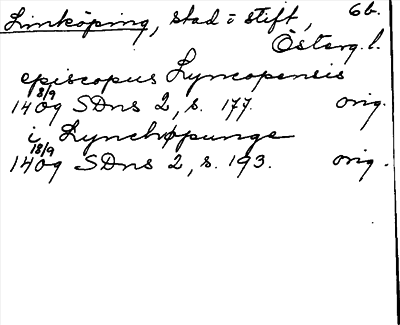 Linköping, stad i stift, 6b.
Österg. l.
episcopus Lyncopensis
1409 8/9 SDns 2, s. 177. orig.
i Lynchøpunge
1409 18/9 SDns 2, s. 193. orig.